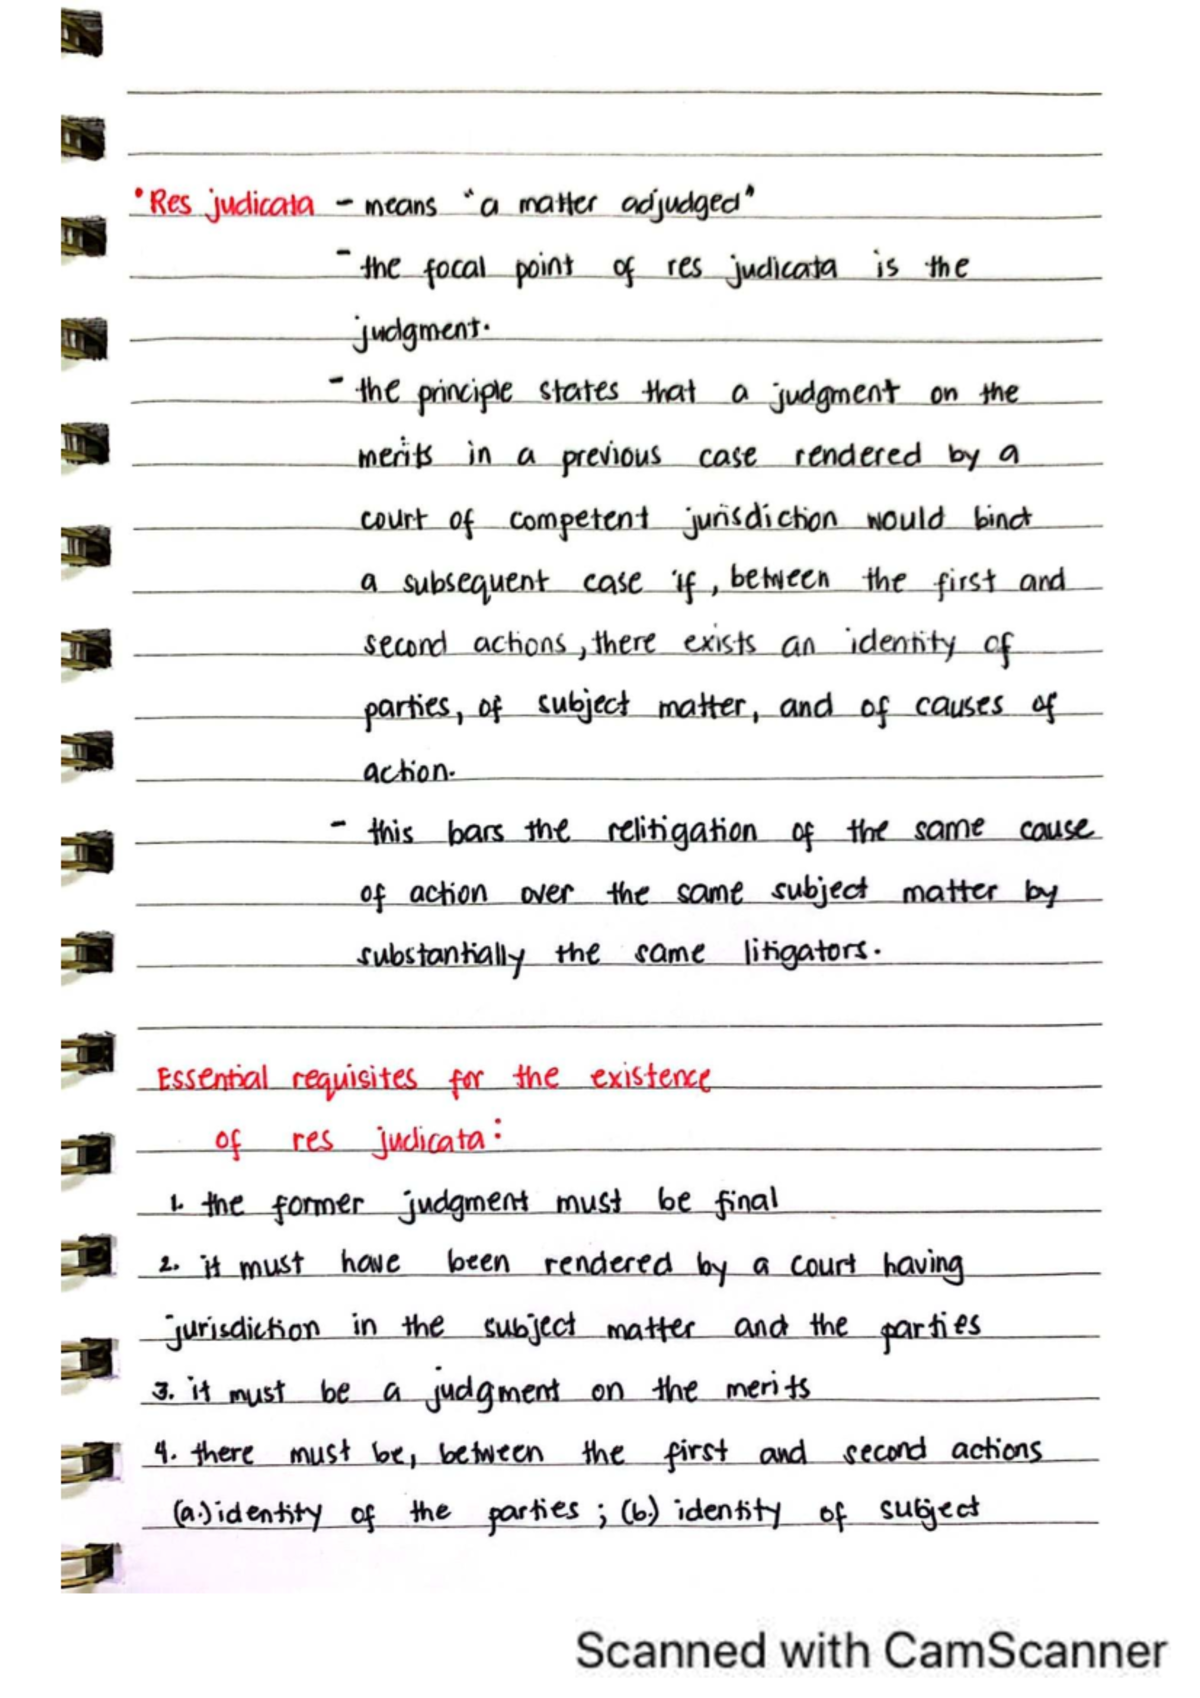 •Res judicata - means "a matter adjudged"
- the focal point of res judicata is the
judgment.
- the principle states that a judgment on the
merits in a previous case rendered by a
court of competent jurisdiction would bind
a subsequent case if, between the first and
second actions, there exists an identity of
parties, of subject matter, and of causes of
action.
- this bars the relitigation of the same cause
of action over the same subject matter by
substantially the same litigators.
Essential requisites for the existence
of res judicata:
1. the former judgment must be final
2. it must have been rendered by a court having
jurisdiction in the subject matter and the parties
3. it must be a judgment on the merits
4. there must be, between the first and second actions
(a.) identity of the parties; (b.) identity of subject
Scanned with CamScanner